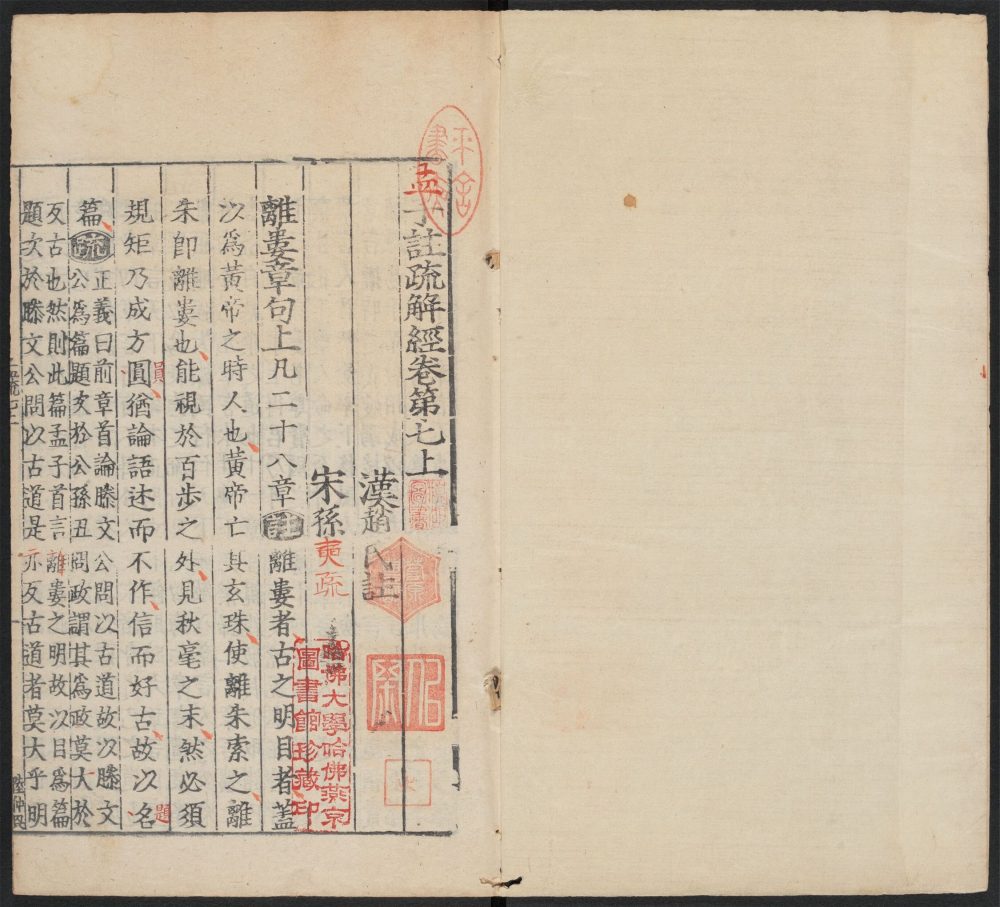 孟子註疏解經卷第七上
漢趙氏註
宋孫奭疏
離婁章句上凡二十八章註離婁者古之明目者蓋
以爲黃帝之時人也黃帝亡其玄珠使離朱索之離
朱卽離婁也能視於百步之外見秋毫之末然必須
規矩乃成方圓猶論語述而不作信而好古故以名
員
題
篇疏正義曰前章首論滕文公問以古道故以滕文
公爲篇題次於公孫丑問政謂其爲政莫大於
反古也然則此篇孟子首言離婁之明故以目爲篇
題次於滕文公問以古道是亦反古道者莫大乎明
陸仲民
哈佛大學哈佛燕京
圖書館珍藏印